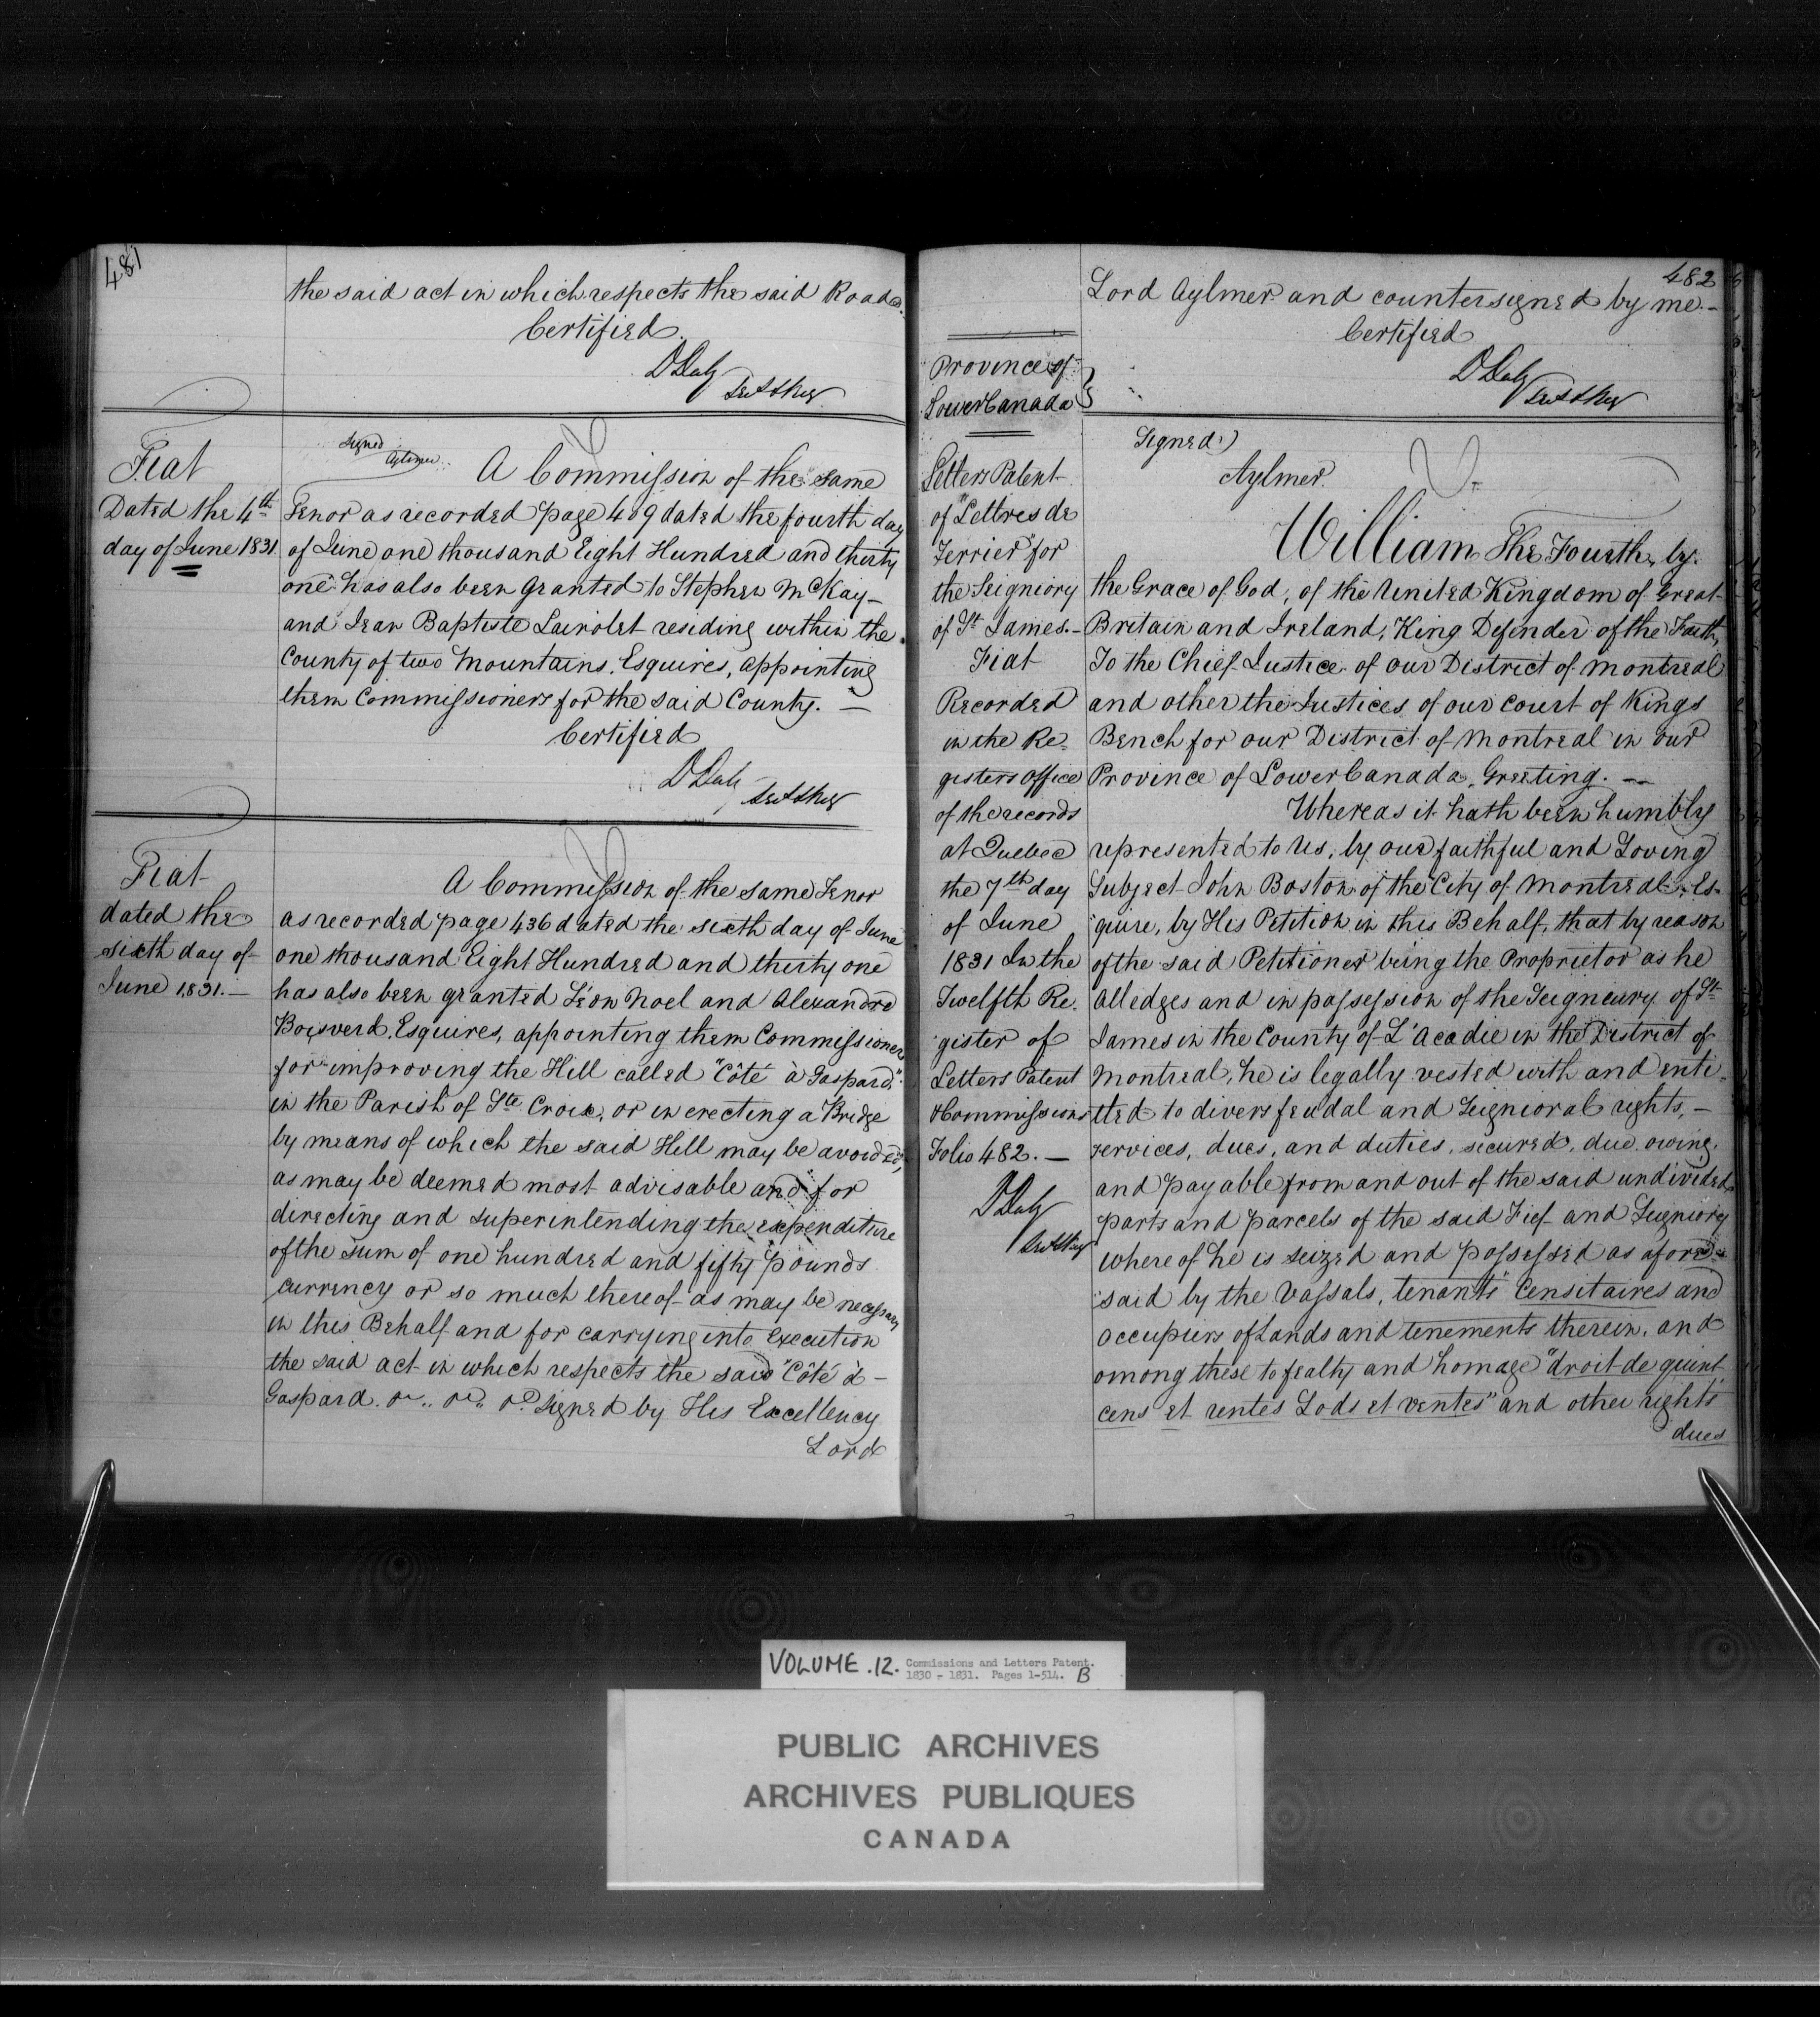 481
the said act in which respects the said Road.
Certified.
D Daly
Sec & Reg
Fiat
Dated the 4th
day of June 1831.
Signed
Aylmer.
A Commission of the same
Tenor as recorded page 409 dated the fourth day
of June one thousand Eight Hundred and thirty
one has also been granted to Stephen McKay—
and Jean Baptiste Lairolet residing within the
County of two Mountains, Esquires, appointing
them Commissioners for the said County. —
Certified
D Daly
Sec & Reg
Fiat
dated the
sixth day of
June 1831.—
A Commission of the same Tenor
as recorded page 436 dated the sixth day of June
one thousand Eight Hundred and thirty one
has also been granted Léon Noel and Alexandre
Boisverd, Esquires, appointing them Commissioners
for improving the Hill called "Côté à Gaspard"
in the Parish of Ste Croix, or in erecting a Bridge
by means of which the said Hill may be avoided,
as may be deemed most advisable and for
directing and superintending the expenditure
of the sum of one hundred and fifty pounds
currency or so much thereof as may be necessary
in this Behalf and for carrying into Execution
the said act in which respects the said "Côté à—
Gaspard. signed by His Excellency
Lord
482
Lord Aylmer and countersigned by me.—
Certified
D Daly
Sec & Reg
Province of
Lower Canada }
Letters Patent
of "Lettres de
Terrier" for
the Seigniory
of St James.—
Fiat
Recorded
in the Re-
gisters office
of the records
at Quebec
the 7th day
of June
1831 In the
Twelfth Re-
gister of
Letters Patent
& Commissions
Folio 482. —
D Daly
Sec & Reg
Signed)
Aylmer.
William The Fourth, by
the Grace of God, of the United Kingdom of Great
Britain and Ireland, King Defender of the Faith,
To the Chief Justice of our District of Montreal
and other the Justices of our Court of Kings
Bench for our District of Montreal in our
Province of Lower Canada, Greeting. —
Whereas it hath been humbly
represented to Us, by our faithful and Loving
Subject John Boston of the City of Montreal, Es-
quire, by His Petition in this Behalf, that by reason
of the said Petitioner being the Proprietor as he
alledges and in possession of the Seigneury of St
James in the County of L'Acadie in the District of
Montreal, he is legally vested with and enti-
tled to divers feudal and Seignioral rights, —
services, dues, and duties, secured, due, owing
and payable from and out of the said undivided
parts and parcels of the said Fief and Seigniory
where of he is seized and possessed as afore-
said by the Vassals, tenants "Censitaires and
occupiers of Lands and tenements therein, and
among these to fealty and homage "droit de quint
cens et rentes Lods et ventes" and other rights
dues
VOLUME .12. Commissions and Letters Patent.
1830 - 1831. Pages 1-514. B
PUBLIC ARCHIVES
ARCHIVES PUBLIQUES
CANADA